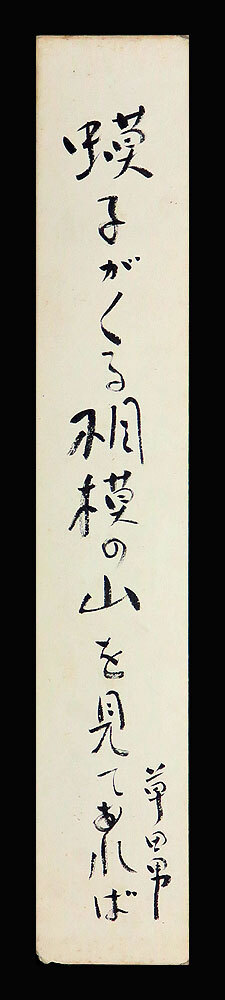 蟆子がくる相模の山を見てあれば
草田男